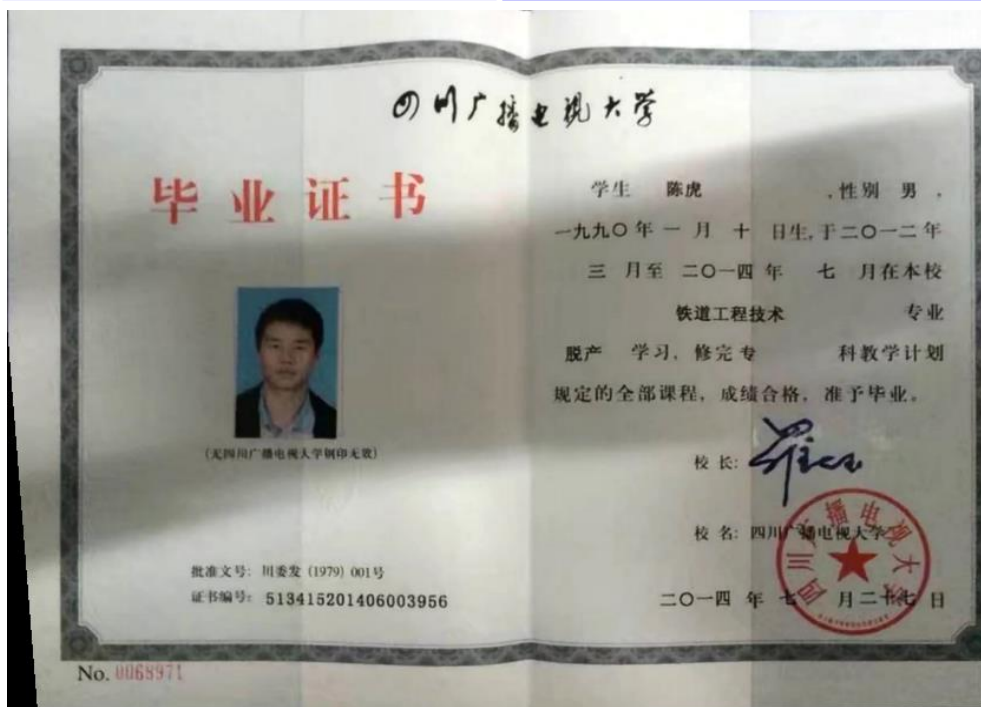 四川广播电视大学
毕业证书
(无四川广播电视大学钢印无效)
批准文号: 川委发 (1979) 001号
证书编号: 513415201406003956
No. 0068971
学生 陈虎 ,性别 男 ,
一九九〇年 一 月 十 日生,于二〇一二年
三 月至 二〇一四 年 七 月在本校
铁道工程技术 专业
脱产 学习, 修完 专 科教学计划
规定的全部课程, 成绩合格, 准予毕业。
校 长:
校 名: 四川广播电视大学
二〇一四 年 七 月二十七 日
四川广播电视大学